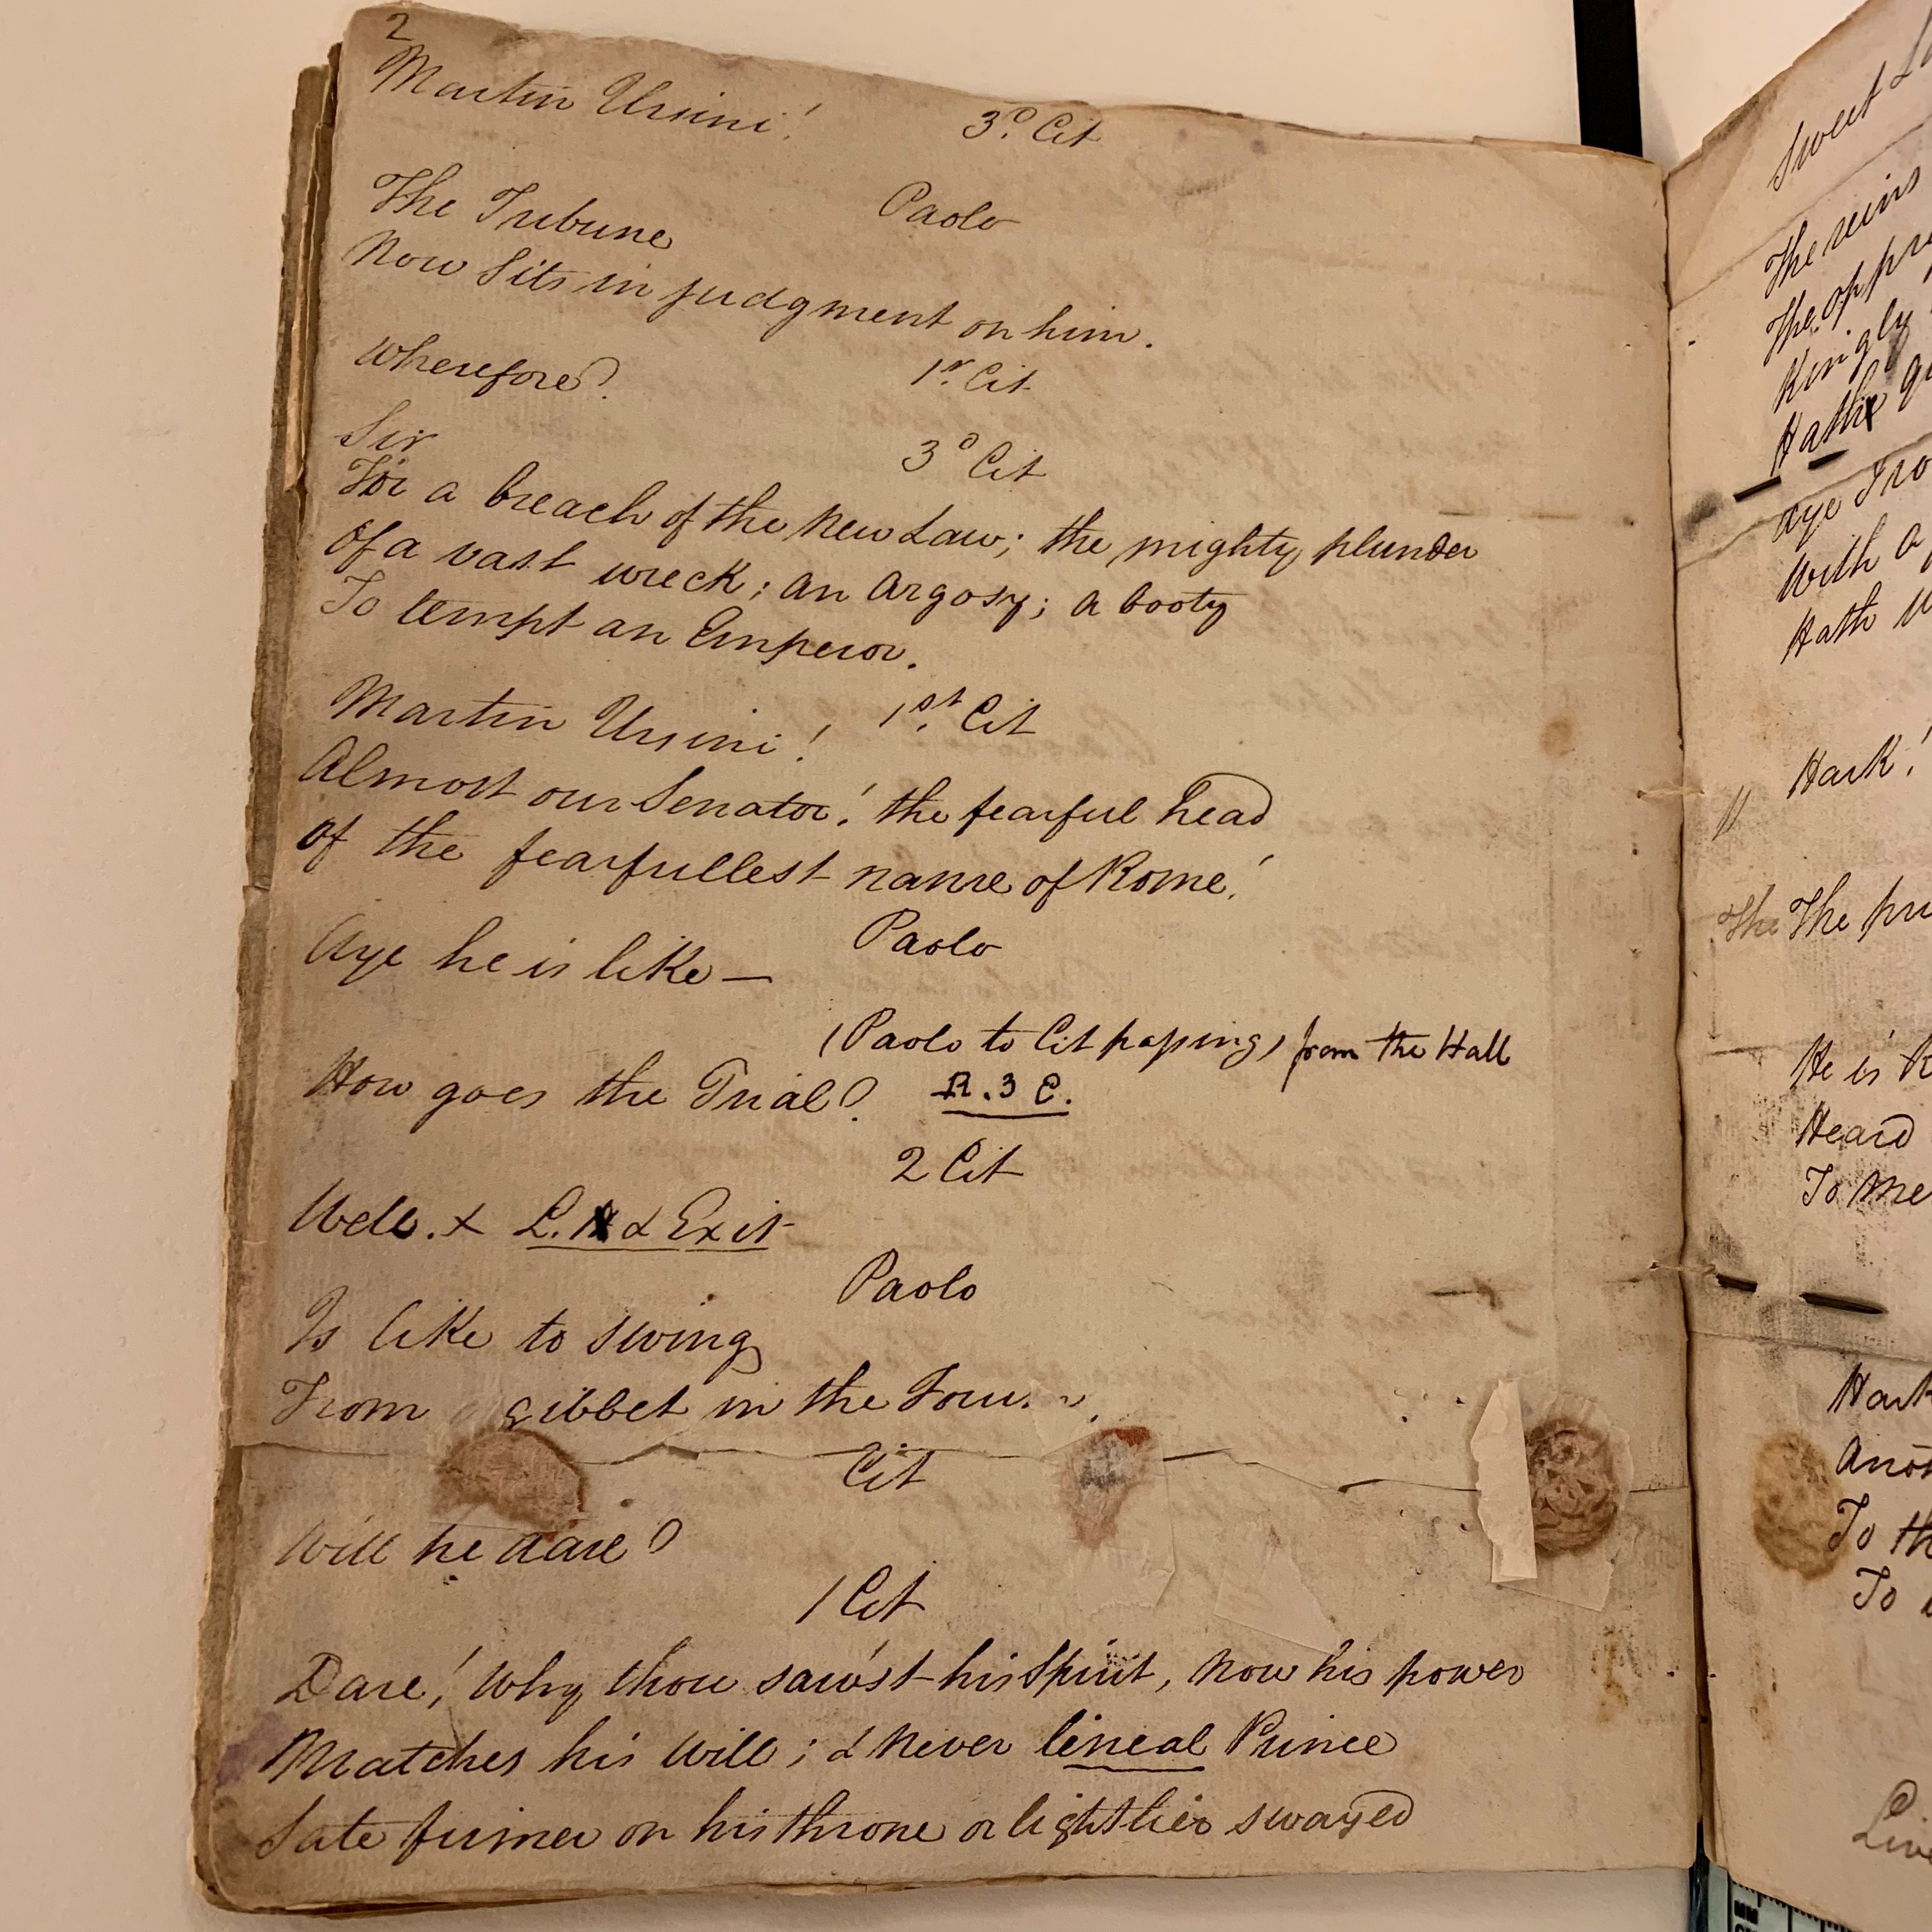 2
3.º Cit
Martin Ursini!
Paolo
The Tribune
Now sits in judgment on him.
1.r Cit
Wherefore?
3º Cit
Sir
For a breach of the New Law; the mighty plunder
Of a vast wreck; an Argosy; a booty
To tempt an Emperor.
1st. Cit
Martin Ursini!
Almost our Senator! the fearful head
Of the fearfullest name of Rome!
Paolo
Aye he is like —
(Paolo to Cit passing) from the Hall
How goes the Trial? R. 3 E.
2 Cit
Well. X L. & Exit
Paolo
Is like to swing
From gibbet in the
Cit
Will he dare?
1 Cit
Dare! Why thou saw'st his Spirit, Now his power
Matches his Will; & Never lineal Prince
Sate firmer on his throne or lightlier swayed
Sweet
The reins
The
Kingly
Hath
Aye
With a
Hath
Hark!
The The
He is
Heard
To me
Hark
To
To